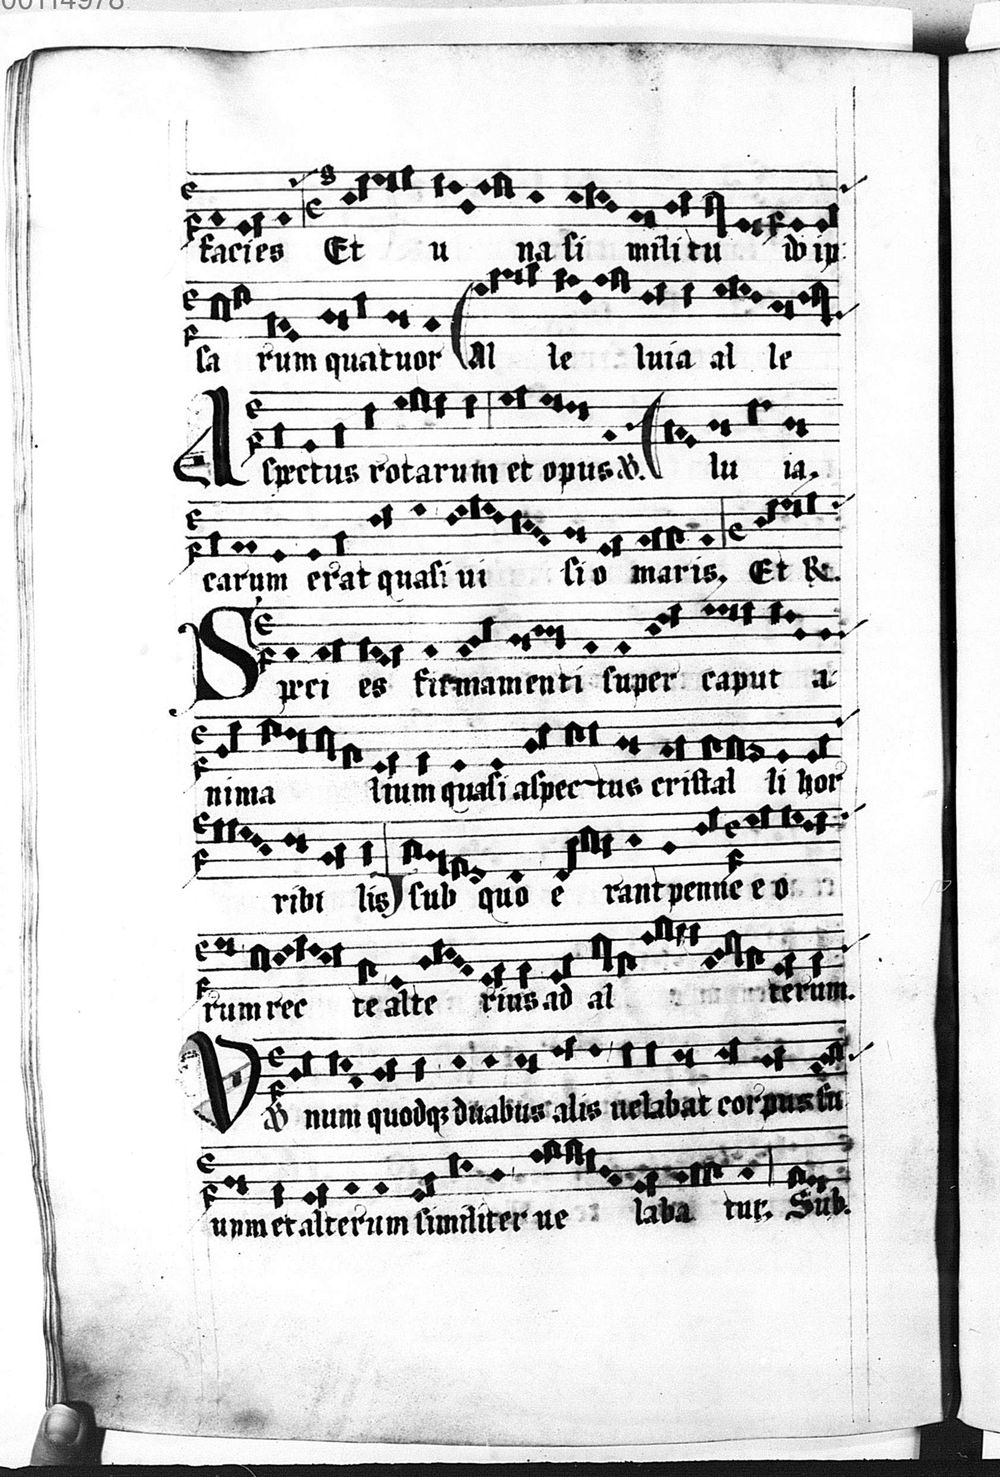 00114978
facies Et u na si militu do ip
sa rum quatuor Al le luia al le
Aspectus rotarum et opus lu ia.
earum erat quasi ui si o maris. Et
Speci es firmamenti super caput a
nima lium quasi aspectus cristal li hor
ribi lis sub quo e rant penne e o
rum rec te alte rius ad al terum.
num quodqz duabus alis uelabat corpus su
unm et alterum similiter ue laba tur. Sub.